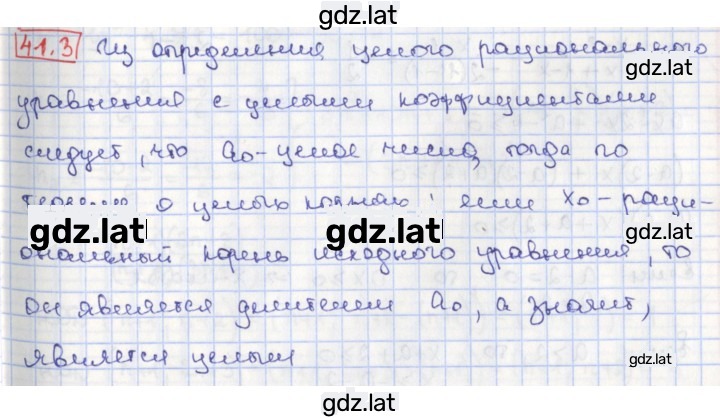 gdz.lat
41.3 Из определения целого рационального
gdz.lat
уравнения с целыми коэффициентами
следует, что a₀ - целое число, тогда по
теореме о целых корнях: если x₀ - раци-
gdz.lat gdz.lat gdz.lat
ональный корень исходного уравнения, то
он является делителем a₀, а значит,
является целым
gdz.lat
gdz.lat